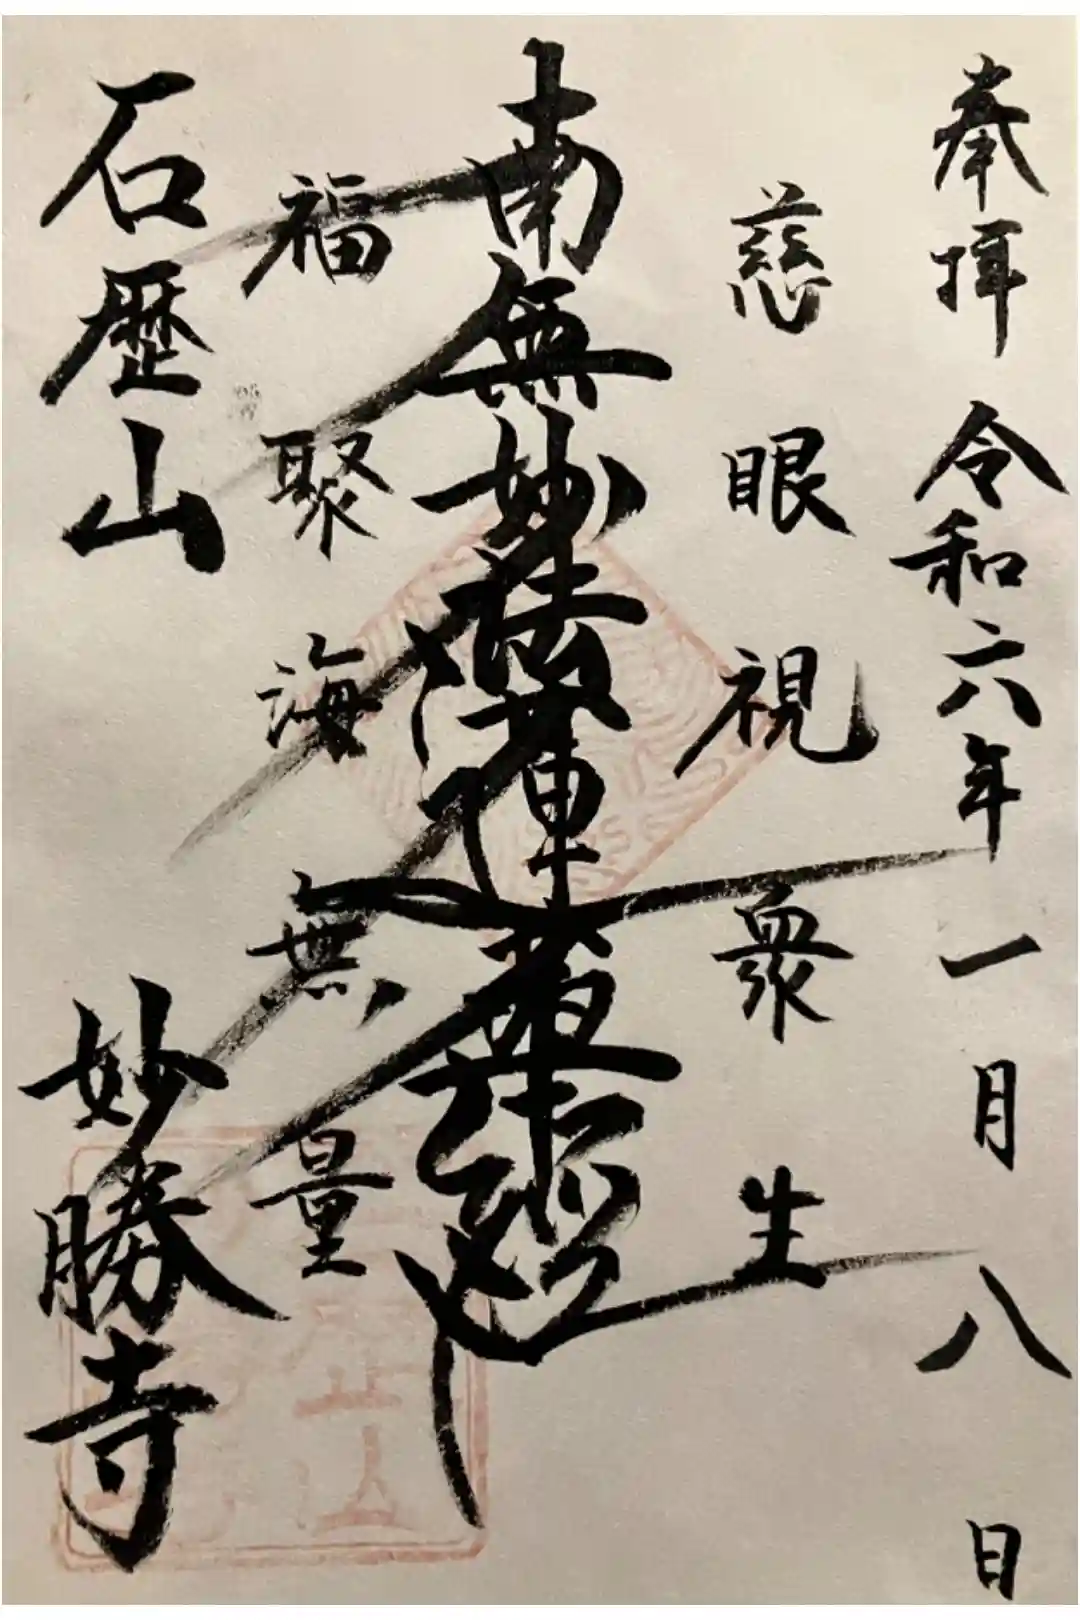 奉拝 令和六年一月八日
慈眼視衆生
南無妙法蓮華経
福聚海無量
石歷山 妙勝寺